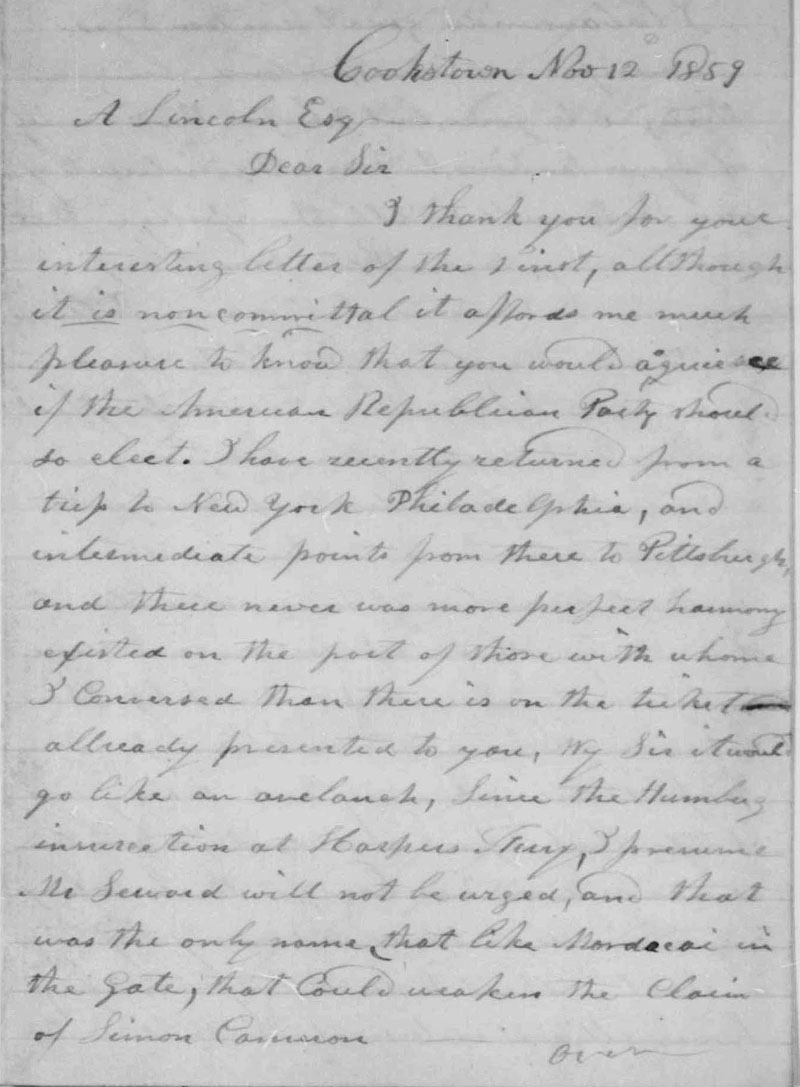 Cookstown Nov 12 1859
A Lincoln Esq
Dear Sir
I thank you for your
interesting letter of the 1 inst, allthough
it is noncommittal it affords me much
pleasure to know that you would aquiesce
if the American Republican Party should
so elect. I have recently returned from a
trip to New York Philadelphia, and
intermediate points from there to Pittsburgh,
and there never was more perfect harmony
existed on the part of those with whome
I Conversed than there is on the ticket
allready presented to you, Wy Sir it would
go like an avelanch, Since the Humbug
insurection at Harpers Ferry, I presume
Mr Seward will not be urged, and that
was the only name, that like Mordacai in
the Gate, that Could weaken the Claim
of Simon Cameron
over